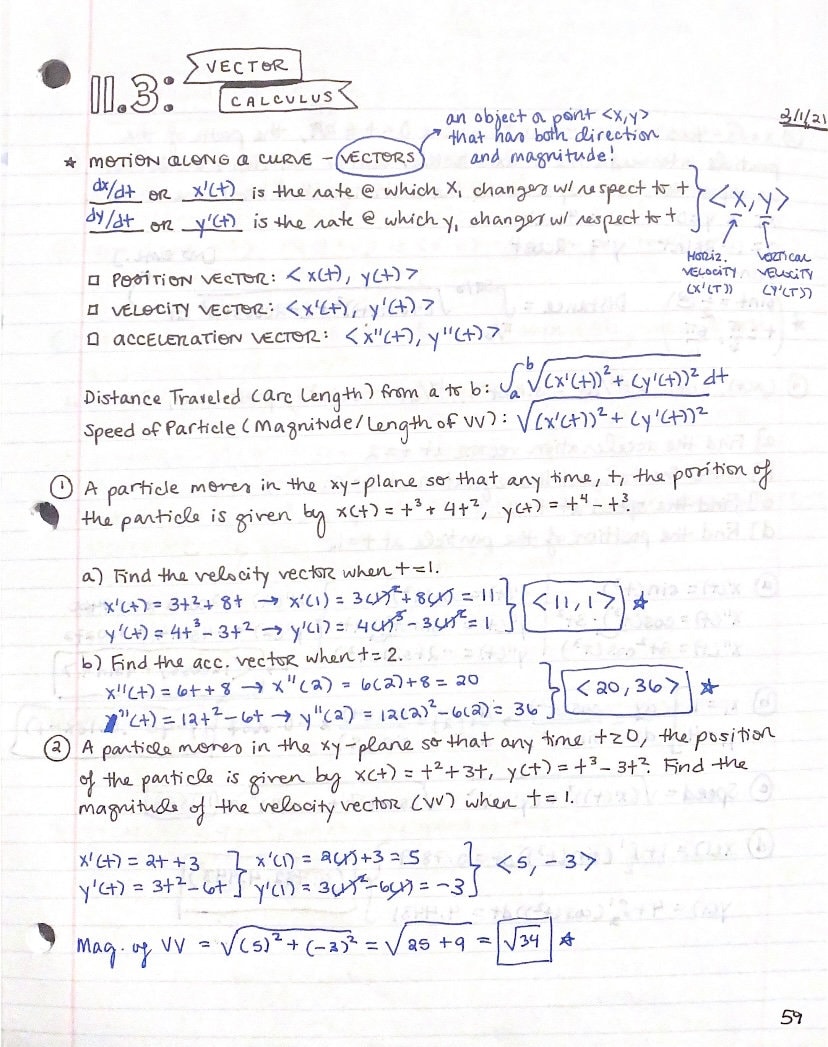 11.3: VECTOR
CALCULUS
3/1/21
an object or point <x,y>
that has both direction
and magnitude!
★ MOTION ALONG A CURVE - VECTORS
dx/dt OR x'(t) is the rate @ which x, changes w/ respect to t
dy/dt OR y'(t) is the rate @ which y, changes w/ respect to t
<x,y>
HORIZ. VELOCITY (X'(T))
VERTICAL VELOCITY (Y'(T))
□ POSITION VECTOR: <x(t), y(t)>
□ VELOCITY VECTOR: <x'(t), y'(t)>
□ ACCELERATION VECTOR: <x''(t), y''(t)>
Distance Traveled (arc length) from a to b: ∫ₐᵇ √((x'(t))² + (y'(t))²) dt
Speed of Particle (Magnitude/Length of VV): √((x'(t))² + (y'(t))²)
① A particle moves in the xy-plane so that any time, t, the position of
the particle is given by x(t) = t³ + 4t², y(t) = t⁴ - t³.
a) Find the velocity vector when t=1.
x'(t) = 3t² + 8t → x'(1) = 3(1)² + 8(1) = 11 } <11, 1> ★
y'(t) = 4t³ - 3t² → y'(1) = 4(1)³ - 3(1)² = 1
b) Find the acc. vector when t=2.
x''(t) = 6t + 8 → x''(2) = 6(2) + 8 = 20 } <20, 36> ★
y''(t) = 12t² - 6t → y''(2) = 12(2)² - 6(2) = 36
② A particle moves in the xy-plane so that any time t≥0, the position
of the particle is given by x(t) = t² + 3t, y(t) = t³ - 3t². Find the
magnitude of the velocity vector (VV) when t=1.
x'(t) = 2t + 3 } x'(1) = 2(1) + 3 = 5 } <5, -3>
y'(t) = 3t² - 6t } y'(1) = 3(1)² - 6(1) = -3
Mag. of VV = √((5)² + (-3)²) = √(25 + 9) = √34 ★
59